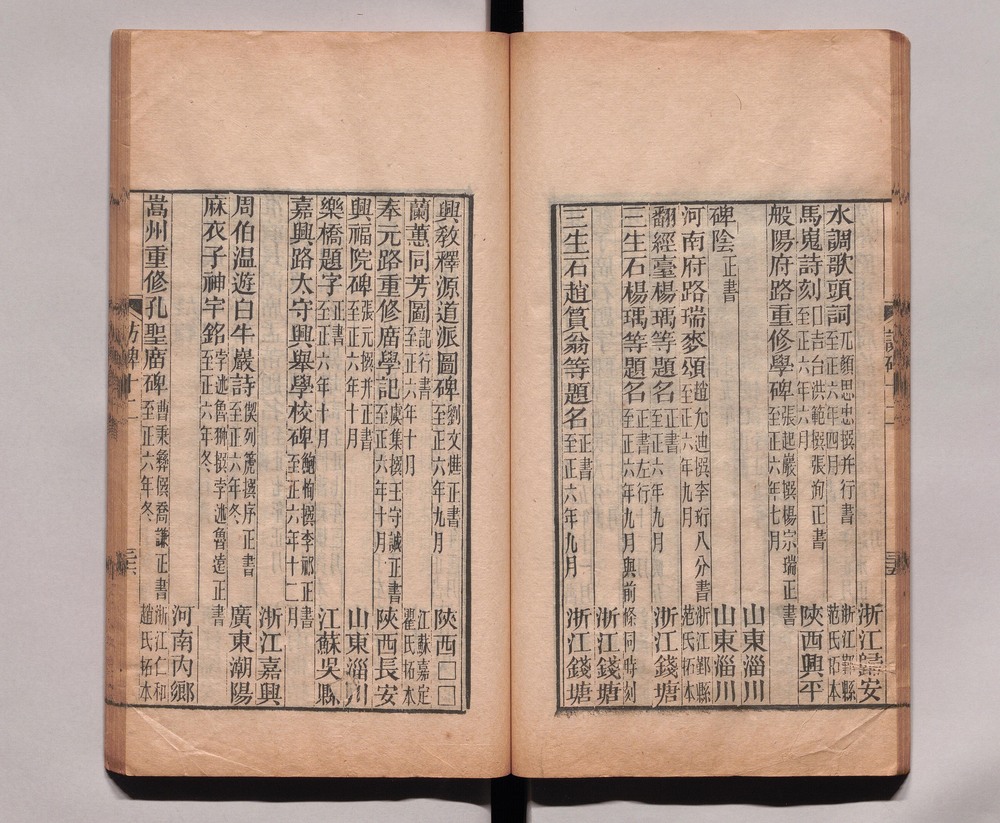 水調歌頭詞 元顏思忠撰并行書 至正六年四月 浙江歸安
馬嵬詩刻 口吉台洪範撰張洵正書 至正六年六月 浙江鄞縣范氏拓本 陝西興平
般陽府路重修學碑 張起巖撰楊宗瑞正書 至正六年七月 山東淄川
碑陰 正書 山東淄川
河南府路瑞麥頌 趙允迪撰李珩八分書 至正六年九月 浙江鄞縣范氏拓本
翻經臺楊瑀等題名 正書 至正六年九月 浙江錢塘
三生石楊瑀等題名 正書左行 至正六年九月與前條同時刻 浙江錢塘
三生石趙篔翁等題名 正書 至正六年九月 浙江錢塘
興敎釋源道派圖碑 劉文 正書 至正六年九月 陝西□□
蘭蕙同芳圖 記行書 至正六年十月 江蘇嘉定瞿氏拓本
奉元路重修廟學記 虞集撰王守誠正書 至正六年十月 陝西長安
興福院碑 張元撰并正書 至正六年十月 山東淄川
樂橋題字 正書 至正六年十月 江蘇吳縣
嘉興路太守興舉學校碑 鮑恂撰李祁正書 至正六年十二月 浙江嘉興
周伯溫遊白牛巖詩 偰列箎撰序正書 至正六年冬 廣東潮陽
麻衣子神宇銘 孛朮魯翀撰孛朮魯遠正書 至正六年冬 河南內鄉
嵩州重修孔聖廟碑 曹秉彝撰喬謙正書 至正六年冬 浙江仁和趙氏拓本
訪碑十二